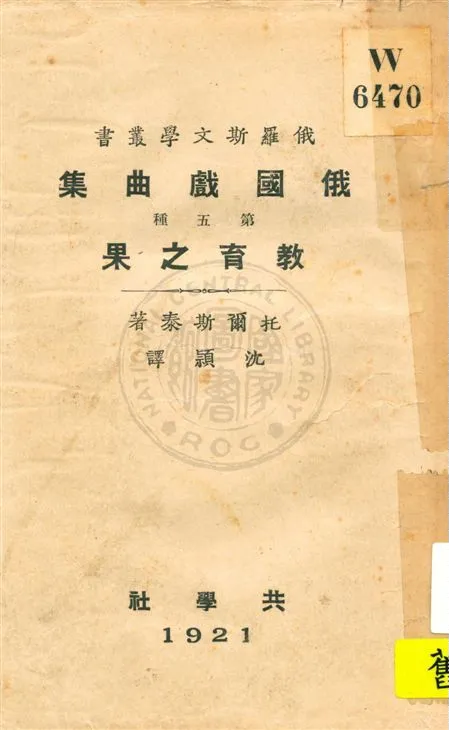 W
6470
俄羅斯文學叢書
俄國戲曲集
第五種
教育之果
托爾斯泰著
沈穎譯
NATIONAL CENTRAL LIBRARY
國家圖書館
ROC
共學社
1921
舊